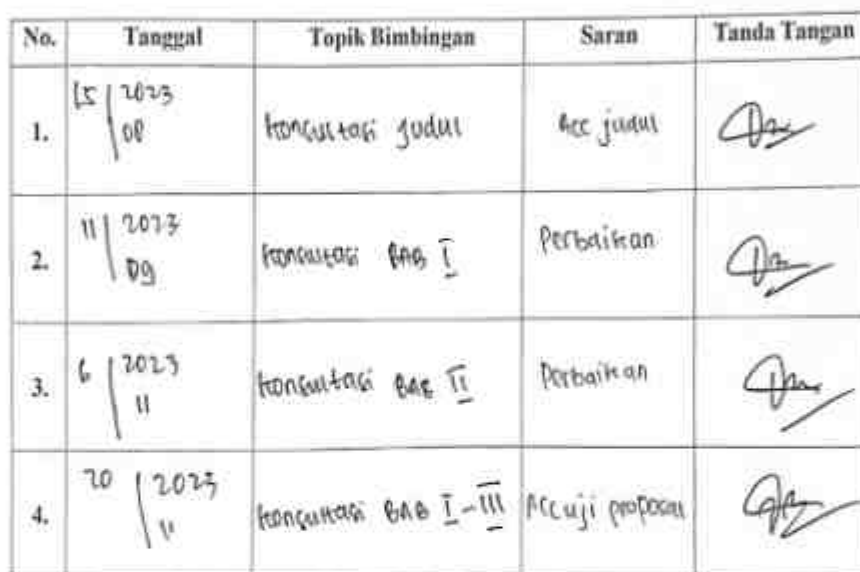 No. Tanggal Topik Bimbingan Saran Tanda Tangan
1. 15/2023 08 Konsultasi Judul Acc judul
2. 11/2023 09 Konsultasi BAB I Perbaikan
3. 6/2023 11 Konsultasi BAB II Perbaikan
4. 20/2023 11 Konsultasi BAB I-III Acc uji proposal